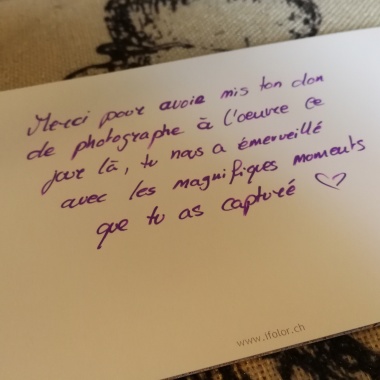 Merci pour avoir mis ton don
de photographe à l'oeuvre ce
jour là, tu nous a émerveillé
avec les magnifiques moments
que tu as capturé ♡
www.ifolor.ch